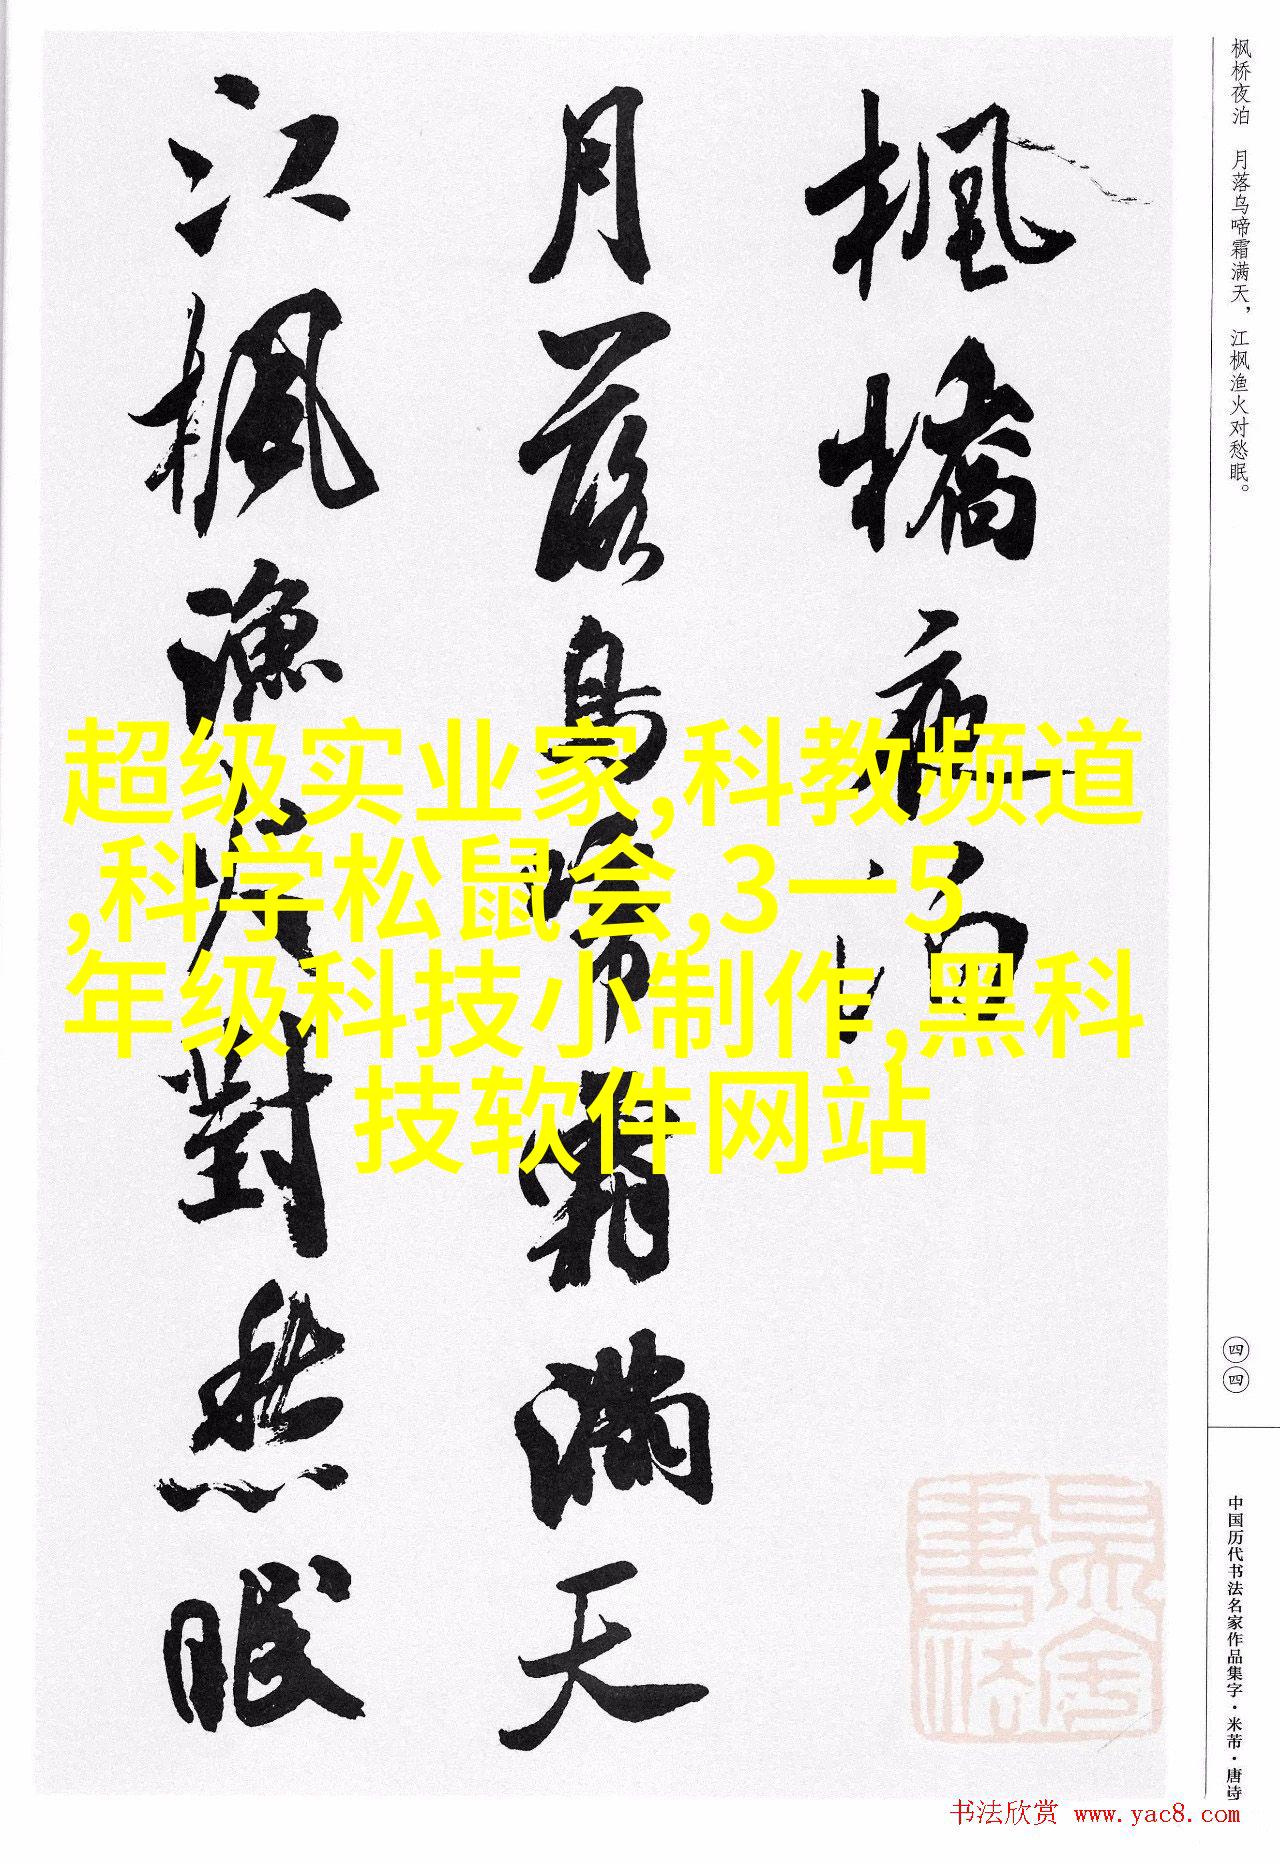 枫桥夜泊　月落乌啼霜满天，江枫渔火对愁眠。
楓橋夜泊
月落烏啼霜滿天
江楓漁火對愁眠
超级实业家,科教频道
,科学松鼠会,3一5
年级科技小制作,黑科
技软件网站
四四
中国历代书法名家作品集字·米芾·唐诗
书法欣赏 www.yac8.com